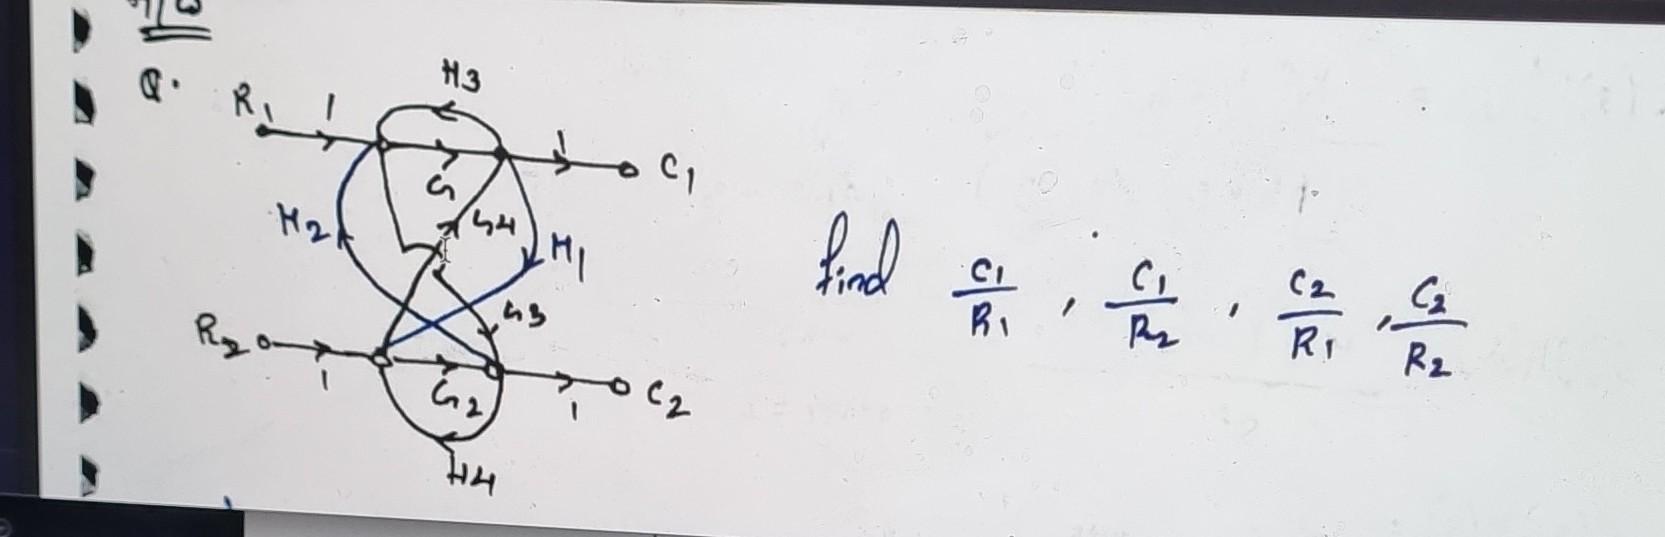 H/W
Q.
H3
R1 1 1 C1
G
H2 G4 H1
G3
R2 1 G2 1 C2
H4
find C1/R1 , C1/R2 , C2/R1 , C2/R2